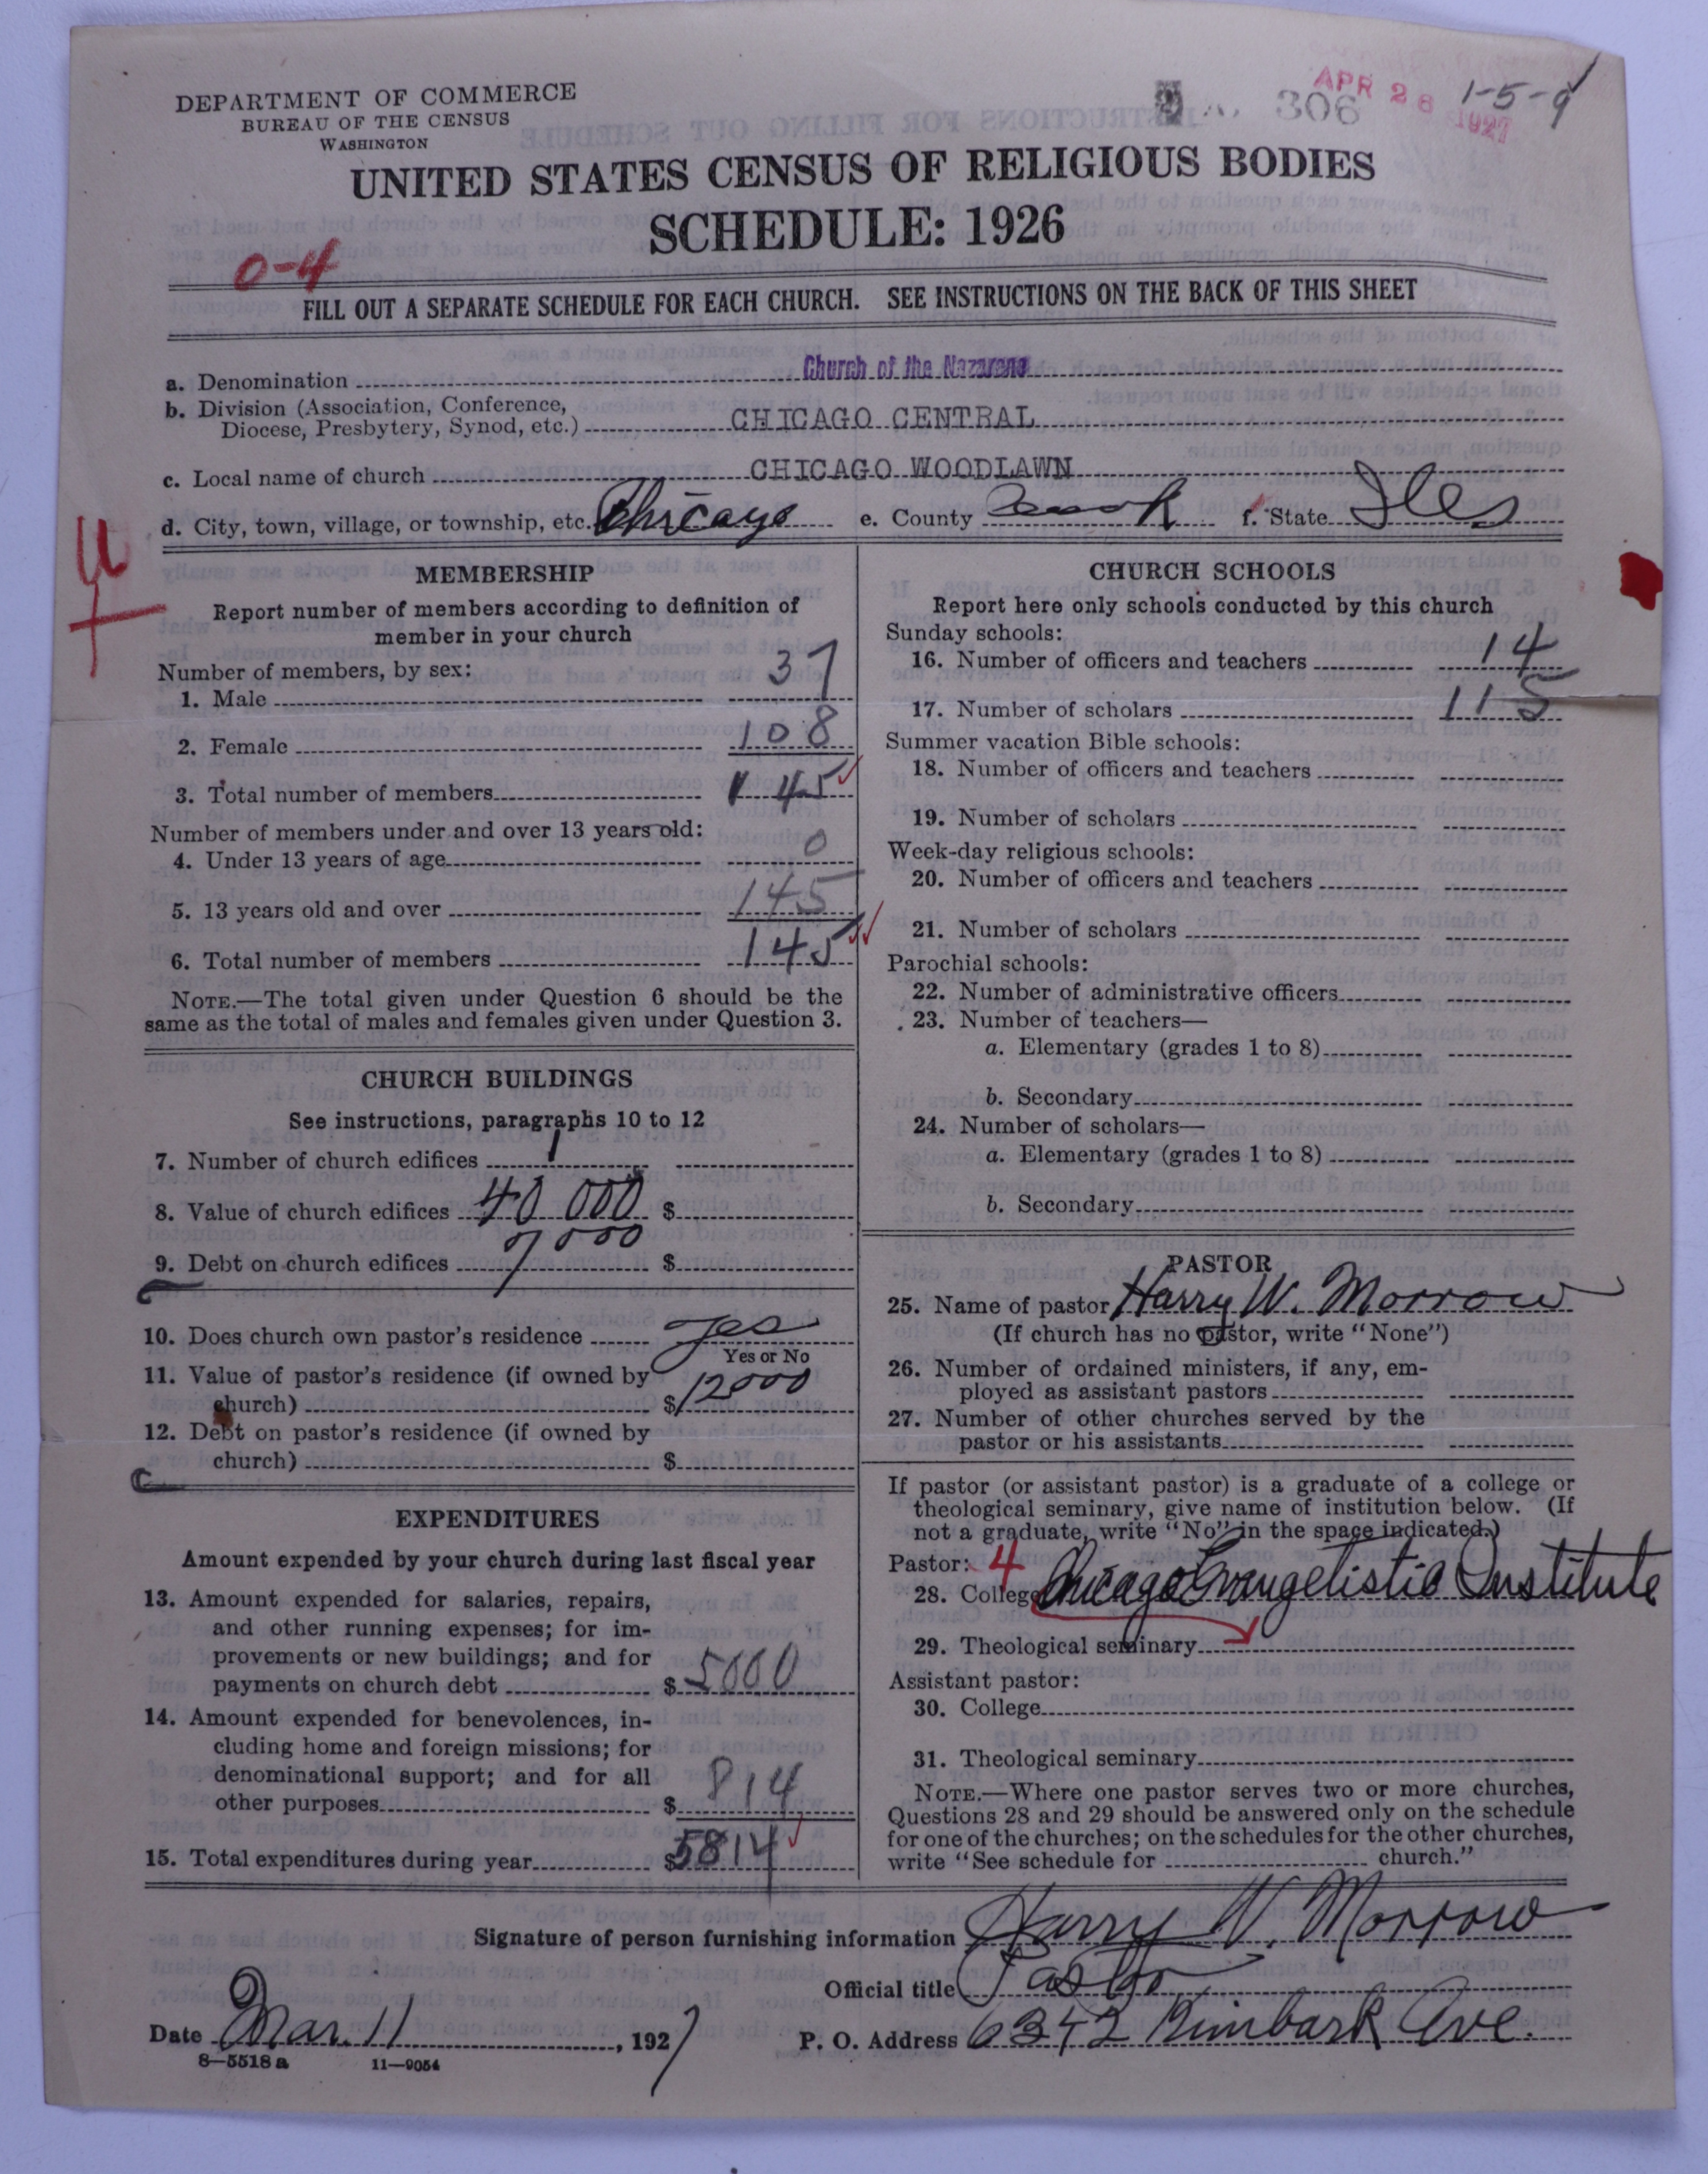 DEPARTMENT OF COMMERCE
BUREAU OF THE CENSUS
WASHINGTON
306
APR 28 1927
1-5-9
UNITED STATES CENSUS OF RELIGIOUS BODIES
SCHEDULE: 1926
0-4
FILL OUT A SEPARATE SCHEDULE FOR EACH CHURCH. SEE INSTRUCTIONS ON THE BACK OF THIS SHEET
a. Denomination Church of the Nazarene
b. Division (Association, Conference,
Diocese, Presbytery, Synod, etc.) CHICAGO CENTRAL
c. Local name of church CHICAGO WOODLAWN
d. City, town, village, or township, etc. Chicago e. County Cook f. State Ills
MEMBERSHIP
Report number of members according to definition of
member in your church
Number of members, by sex:
1. Male 37
2. Female 108
3. Total number of members 145
Number of members under and over 13 years old:
4. Under 13 years of age 0
5. 13 years old and over 145
6. Total number of members 145
NOTE.—The total given under Question 6 should be the
same as the total of males and females given under Question 3.
CHURCH BUILDINGS
See instructions, paragraphs 10 to 12
7. Number of church edifices 1
8. Value of church edifices 40 000 $
9. Debt on church edifices 7000 $
10. Does church own pastor's residence yes
Yes or No
11. Value of pastor's residence (if owned by
church) $ 12000
12. Debt on pastor's residence (if owned by
church) $
EXPENDITURES
Amount expended by your church during last fiscal year
13. Amount expended for salaries, repairs,
and other running expenses; for im-
provements or new buildings; and for
payments on church debt $ 5000
14. Amount expended for benevolences, in-
cluding home and foreign missions; for
denominational support; and for all
other purposes $ 814
15. Total expenditures during year $ 5814
CHURCH SCHOOLS
Report here only schools conducted by this church
Sunday schools:
16. Number of officers and teachers 14
17. Number of scholars 115
Summer vacation Bible schools:
18. Number of officers and teachers
19. Number of scholars
Week-day religious schools:
20. Number of officers and teachers
21. Number of scholars
Parochial schools:
22. Number of administrative officers
23. Number of teachers—
a. Elementary (grades 1 to 8)
b. Secondary
24. Number of scholars—
a. Elementary (grades 1 to 8)
b. Secondary
PASTOR
25. Name of pastor Harry W. Morrow
(If church has no pastor, write "None")
26. Number of ordained ministers, if any, em-
ployed as assistant pastors
27. Number of other churches served by the
pastor or his assistants
If pastor (or assistant pastor) is a graduate of a college or
theological seminary, give name of institution below. (If
not a graduate, write "No" in the space indicated.)
Pastor: 4
28. College Chicago Evangelistic Institute
29. Theological seminary
Assistant pastor:
30. College
31. Theological seminary
NOTE.—Where one pastor serves two or more churches,
Questions 28 and 29 should be answered only on the schedule
for one of the churches; on the schedules for the other churches,
write "See schedule for church."
Signature of person furnishing information Harry W. Morrow
Official title Pastor
Date Mar. 11, 1927 P. O. Address 6342 Kimbark Ave.
8—5518 a 11—9054